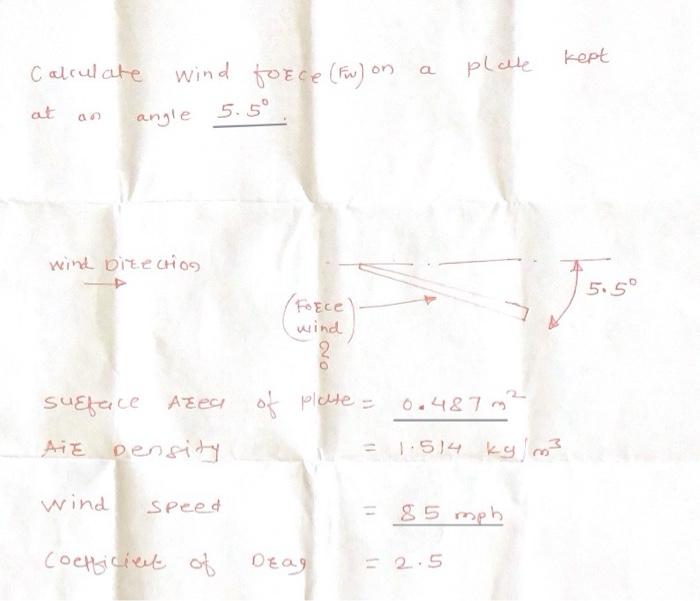 Calculate wind force (Fw) on a plate kept
at an angle 5.5°.
wind Direction
5.5°
(Force
wind)
?
surface Area of plate = 0.487 m²
Air Density = 1.514 kg/m³
wind speed = 85 mph
Coefficient of Drag = 2.5